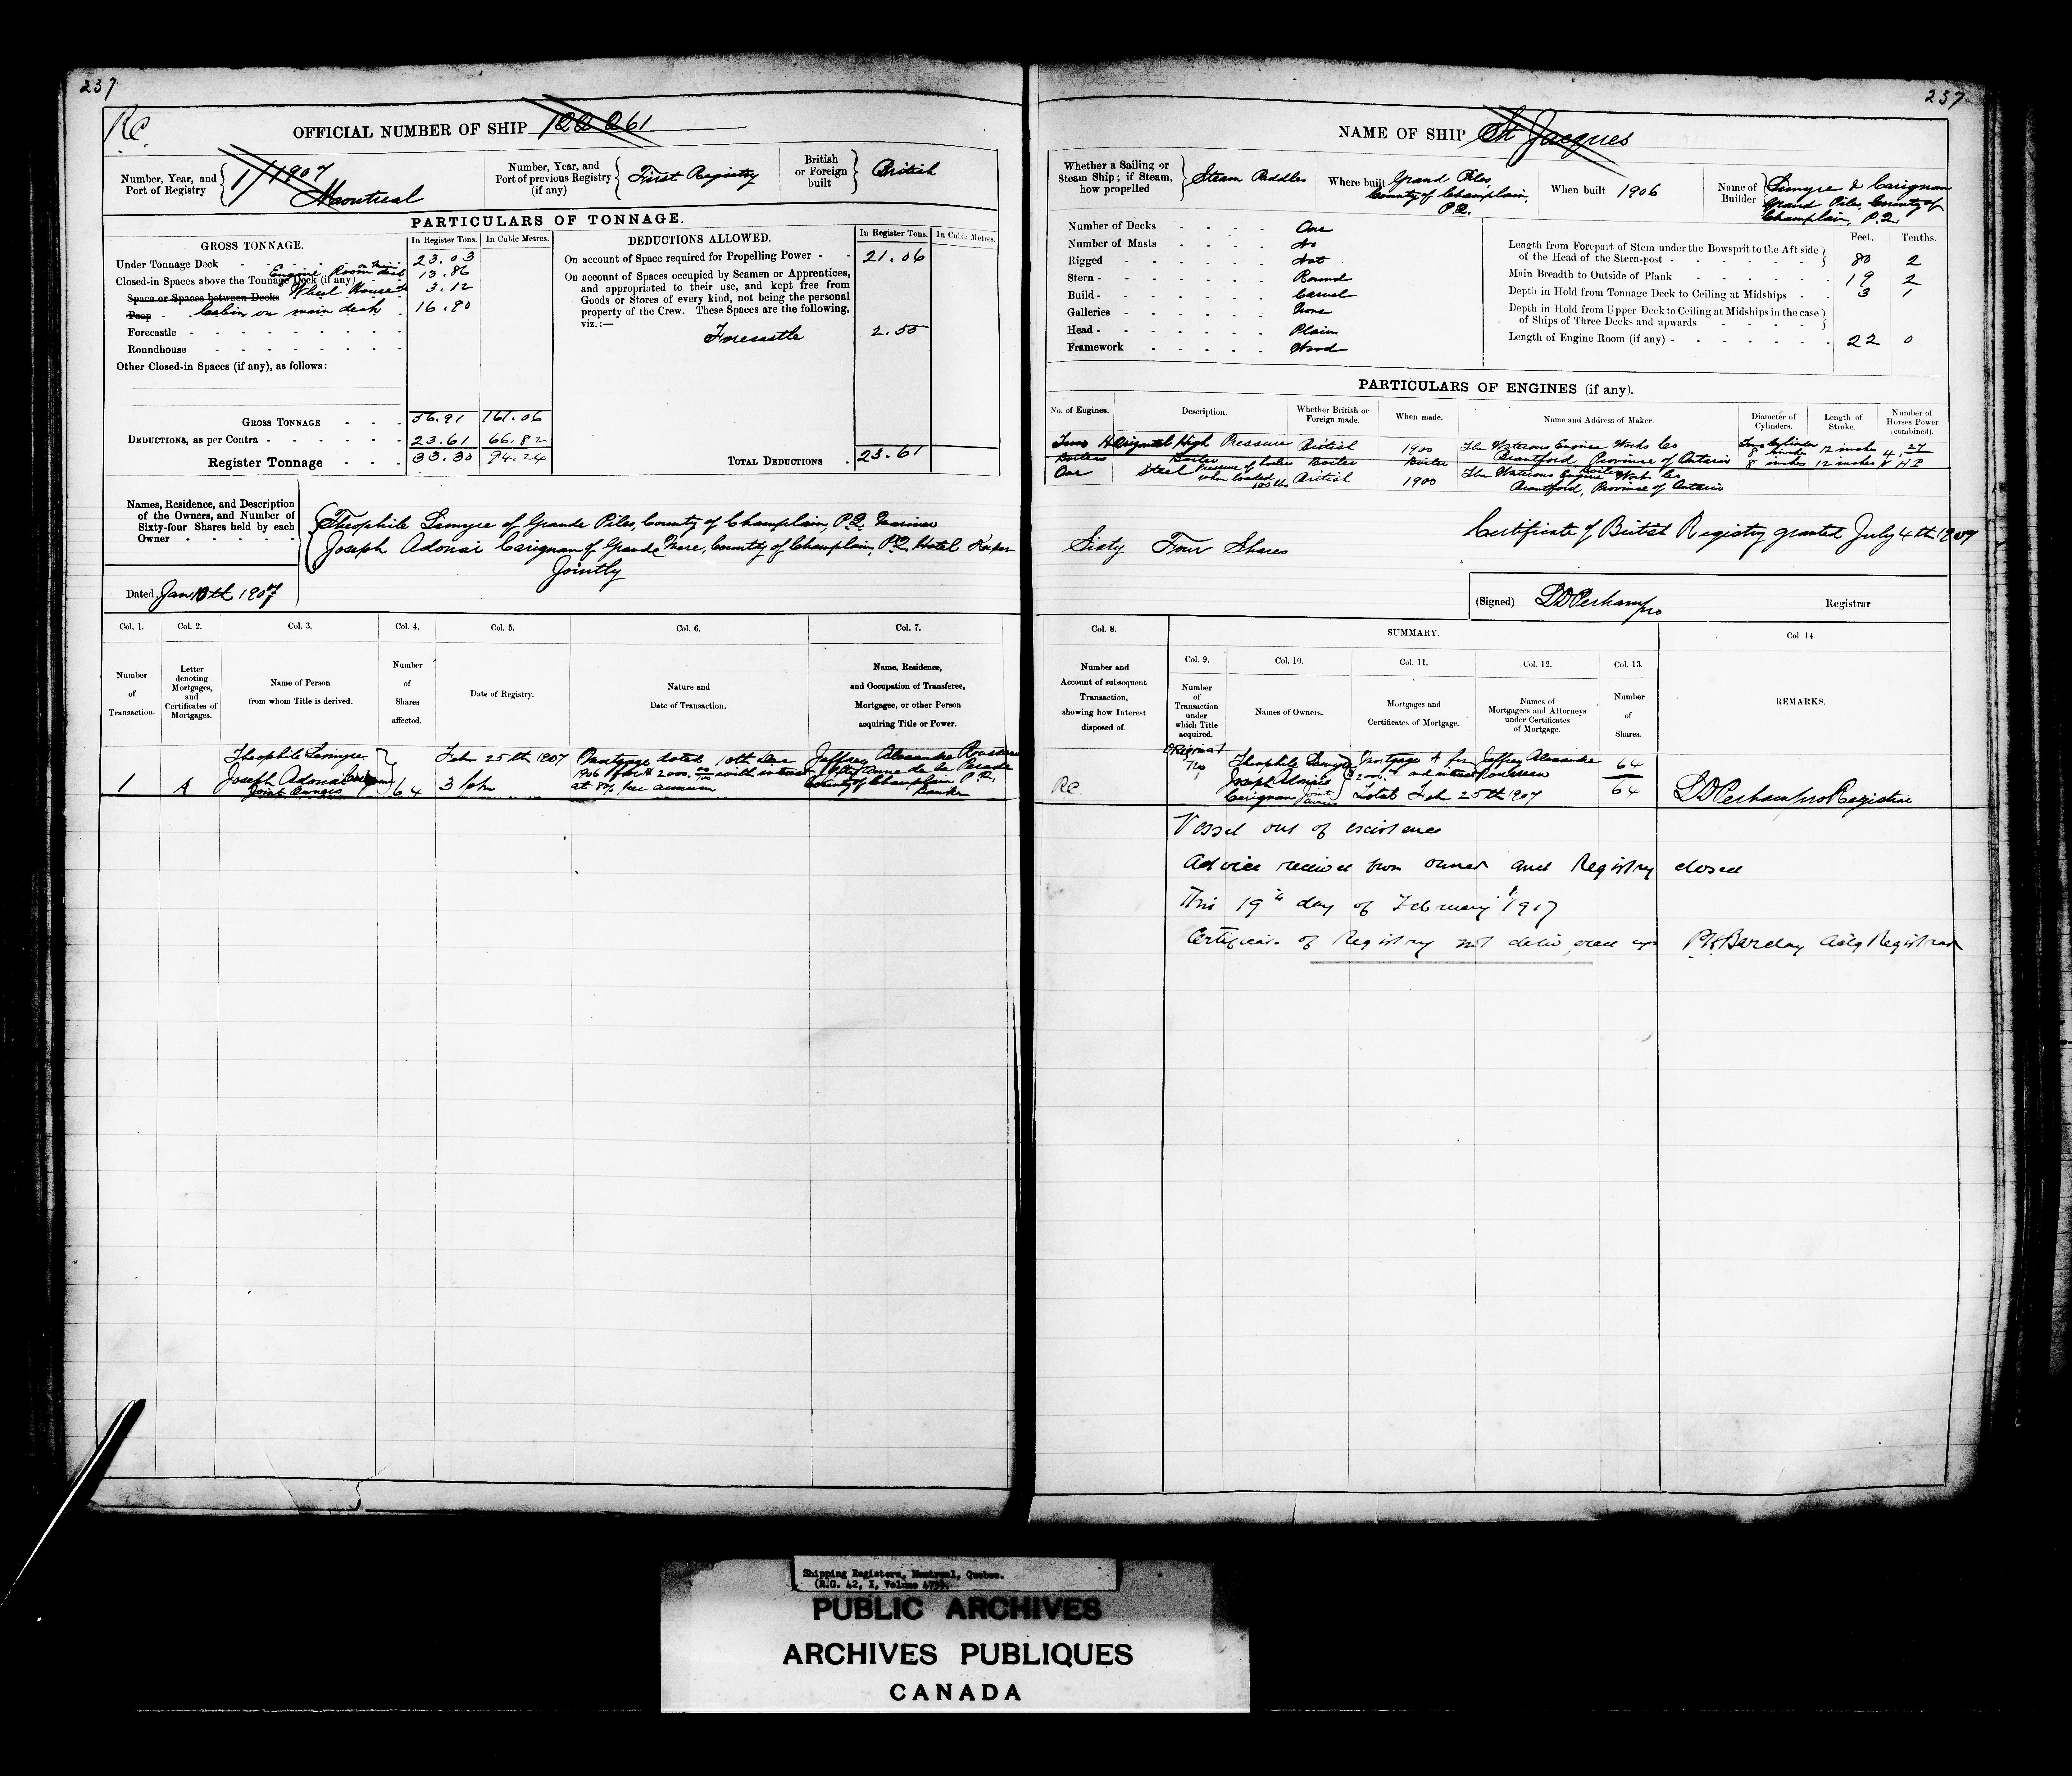 237
237
R.C.
OFFICIAL NUMBER OF SHIP 122 261
Number, Year, and Port of Registry 1/1907 Montreal
Number, Year, and Port of previous Registry (if any) First Registry
British or Foreign built British
PARTICULARS OF TONNAGE.
GROSS TONNAGE.
In Register Tons. In Cubic Metres.
Under Tonnage Deck 23.03
Closed-in Spaces above the Tonnage Deck (if any) Engine Room on Main deck 13.86
Space or Spaces between Decks Wheel House 3.12
Poop Cabin on main deck 16.90
Forecastle
Roundhouse
Other Closed-in Spaces (if any), as follows:
GROSS TONNAGE 56.91 161.06
DEDUCTIONS, as per Contra 23.61 66.82
Register Tonnage 33.30 94.24
DEDUCTIONS ALLOWED.
In Register Tons. In Cubic Metres.
On account of Space required for Propelling Power 21.06
On account of Spaces occupied by Seamen or Apprentices,
and appropriated to their use, and kept free from
Goods or Stores of every kind, not being the personal
property of the Crew. These Spaces are the following,
viz.:—
Forecastle 2.55
TOTAL DEDUCTIONS 23.61
Names, Residence, and Description
of the Owners, and Number of
Sixty-four Shares held by each
Owner
Theophile Lemyre of Grande Piles, County of Champlain, P.Q. Mariner
Joseph Adonai Carignan of Grande Mere, County of Champlain, P.Q. Hotel Keeper
Jointly
Dated Jan 10th 1907
Col. 1. Col. 2. Col. 3. Col. 4. Col. 5. Col. 6. Col. 7.
Number of Transaction.
Letter denoting Mortgages, and Certificates of Mortgages.
Name of Person from whom Title is derived.
Number of Shares affected.
Date of Registry.
Nature and Date of Transaction.
Name, Residence, and Occupation of Transferee, Mortgagee, or other Person acquiring Title or Power.
1 A
Theophile Lemyre
Joseph Adonai Carignan
Joint Owners
64
Feb 25th 1907
3 pm
Mortgage dated 10th Dec
1906 for $2000.00 with interest
at 8% per annum
Jeffrey Alexandre Rousseau
of Ste Anne de la Perade
County of Champlain P.Q.
Banker
NAME OF SHIP St Jacques
Whether a Sailing or Steam Ship; if Steam, how propelled Steam Paddles
Where built Grand Piles, County of Champlain, P.Q.
When built 1906
Name of Builder Lemyre & Carignan
Grand Piles County of
Champlain, P.Q.
Number of Decks One
Number of Masts No
Rigged Not
Stern Round
Build Carvel
Galleries None
Head Plain
Framework Wood
Feet. Tenths.
Length from Forepart of Stem under the Bowsprit to the Aft side
of the Head of the Stern-post 80 2
Main Breadth to Outside of Plank 19 2
Depth in Hold from Tonnage Deck to Ceiling at Midships 3 1
Depth in Hold from Upper Deck to Ceiling at Midships in the case
of Ships of Three Decks and upwards
Length of Engine Room (if any) 22 0
PARTICULARS OF ENGINES (if any).
No. of Engines. Description. Whether British or Foreign made. When made. Name and Address of Maker. Diameter of Cylinders. Length of Stroke. Number of Horses Power (combined).
Two Horizontal High Pressure British 1900 The Waterous Engine Works Co
Brantford, Province of Ontario
Two Cylinder 8 inches 8 inches
12 inches 12 inches
Boilers Boiler Boiler Boiler
One Steel Pressure of boilers when loaded 100 lbs British 1900 The Waterous Engine Work Co
Brantford, Province of Ontario
Sixty Four Shares
Certificate of British Registry granted July 4th 1907
(Signed) Registrar
Col. 8.
Number and Account of subsequent Transaction, showing how Interest disposed of.
SUMMARY.
Col. 9. Col. 10. Col. 11. Col. 12. Col. 13. Col 14.
Number of Transaction under which Title acquired.
Names of Owners.
Mortgages and Certificates of Mortgage.
Names of Mortgagees and Attorneys under Certificates of Mortgage.
Number of Shares.
REMARKS.
R.C.
Original
Theophile Lemyre
Joseph Adonai
Carignan Joint Owners
Mortgage A for
$2000.00 and interest
Jeffrey Alexandre
Rousseau
64
64
Total Feb 25th 1907
pro Registrar
Vessel out of existence
Advice received from owner and Registry closed
This 19th day of February 1917
Certificate of Registry not delivered up P.H. Barclay Actg Registrar
Shipping Registers, Montreal, Quebec.
(R.G. 42, I, Volume 479).
PUBLIC ARCHIVES
ARCHIVES PUBLIQUES
CANADA